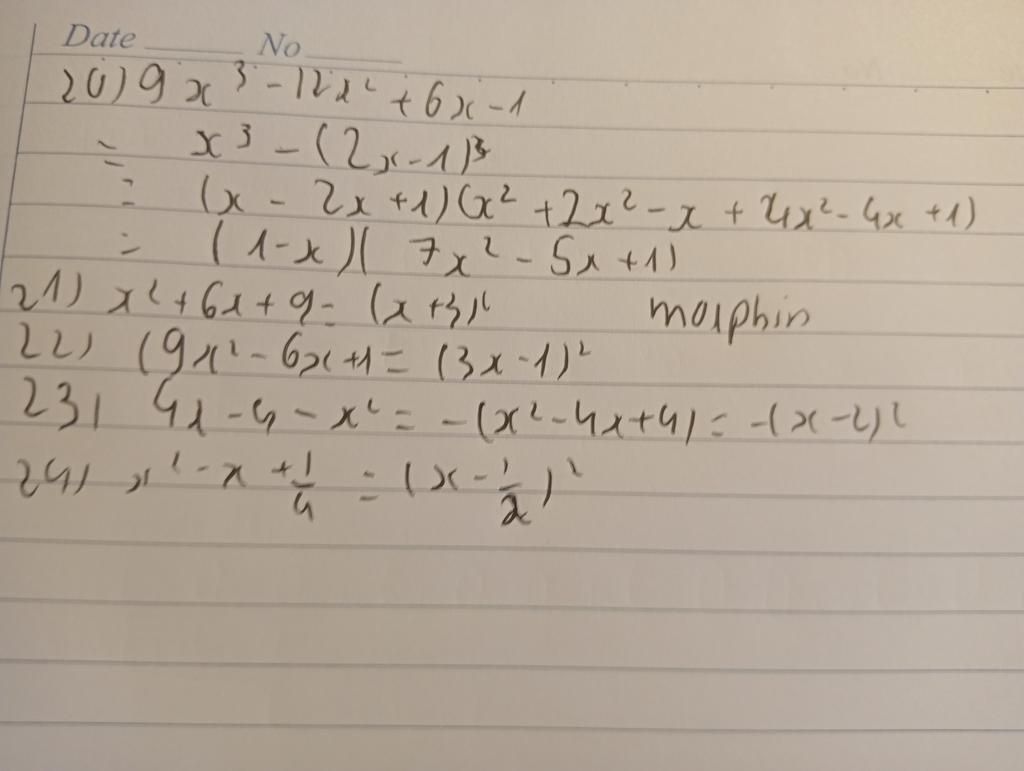 Date No
20) 9x³ - 12x² + 6x - 1
= x³ - (2x - 1)³
= (x - 2x + 1)(x² + 2x² - x + 4x² - 4x + 1)
= (1 - x)(7x² - 5x + 1)
21) x² + 6x + 9 = (x + 3)² morphin
22) (9x² - 6x + 1 = (3x - 1)²
23) 4x - 4 - x² = -(x² - 4x + 4) = -(x - 2)²
24) x² - x + 1/4 = (x - 1/2)²